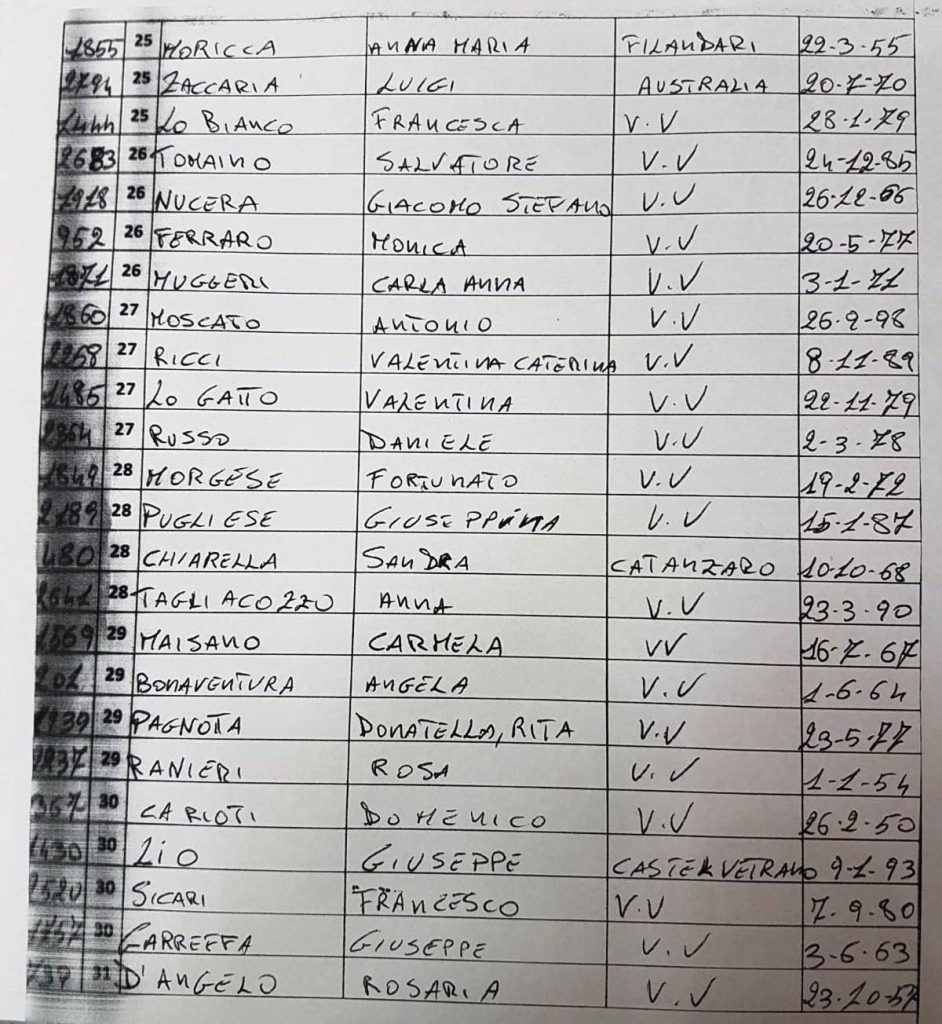 1855 25 MORICCA ANNA MARIA FILANDARI 22-3-55
2794 25 ZACCARIA LUIGI AUSTRALIA 20-7-70
1444 25 LO BIANCO FRANCESCA V.V 28-1-79
2683 26 TOMAINO SALVATORE V.V 24-12-85
1918 26 NUCERA GIACOMO STEFANO V.V 26-12-66
952 26 FERRARO MONICA V.V 20-5-77
1871 26 MUGGERI CARLA ANNA V.V 3-1-71
1860 27 MOSCATO ANTONIO V.V 26-9-98
2268 27 RICCI VALENTINA CATERINA V.V 8-11-89
1485 27 LO GATTO VALENTINA V.V 22-11-79
2364 27 RUSSO DANIELE V.V 2-3-78
1849 28 MORGESE FORTUNATO V.V 19-2-72
2189 28 PUGLIESE GIUSEPPINA V.V 15-1-87
480 28 CHIARELLA SANDRA CATANZARO 10-10-68
2641 28 TAGLIACOZZO ANNA V.V 23-3-90
1569 29 MAISANO CARMELA VV 16-7-67
201 29 BONAVENTURA ANGELA V.V 1-6-64
1939 29 PAGNOTTA DONATELLA, RITA V.V 23-5-77
2237 29 RANIERI ROSA V.V 1-1-54
367 30 CARIOTI DOMENICO V.V 26-2-50
1430 30 LIO GIUSEPPE CASTELVETRANO 9-1-93
2520 30 SICARI FRANCESCO V.V 7-9-80
30 GIUSEPPE V.V 3-6-63
31 D'ANGELO ROSARIA V.V